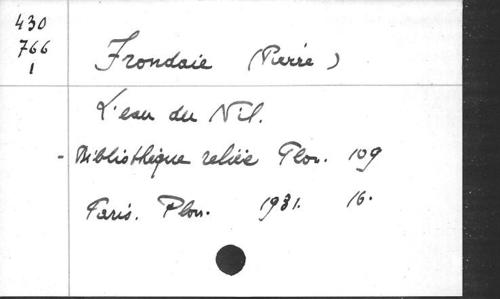 430
766
1
Frondaie (Pierre)
L'eau du Nil.
- Bibliothèque reliée Plon. 109
Paris. Plon. 1931. 16.